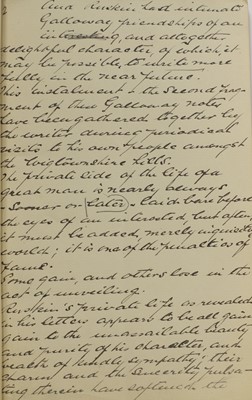 and Ruskin had intimate
Galloway friendships of an
interesting, and altogether
delightful character, of which it
may be possible, to write more
fully in the near future.
This instalment - the second frag-
ment of these Galloway notes
have been gathered together by
the writer during periodical
visits to his own people amongst
the Wigtownshire hills.
The private side of the life of a
great man is nearly always
- sooner or later - laid bare before
the eyes of an interested, but often,
it must be added, merely inquisitive
world; it is one of the penalties of
fame.
Some gain and others lose in the
act of unveiling.
Ruskin's private life as revealed
in his letters appears to be all gain
gain to the unassailable beauty
and purity of his character, and
wealth of kindly sympathy; their
charm and the sincerity pulsa-
ting therein have softened the